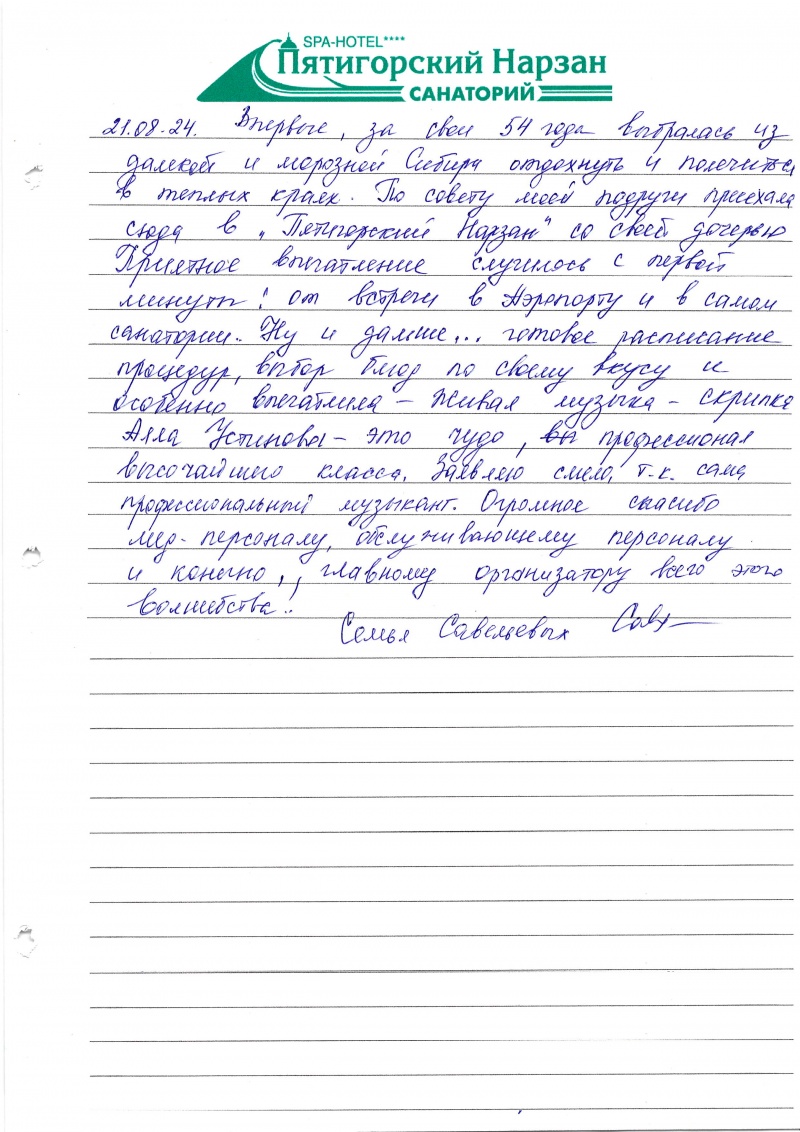 SPA-HOTEL****
Пятигорский Нарзан
САНАТОРИЙ
21.08.24. Впервые, за свои 54 года выбралась из
далекой и морозной Сибири отдохнуть и полечиться
в теплых краях. По совету моей подруги приехала
сюда в „Пятигорский Нарзан" со своей дочерью
Приятное впечатление случилось с первой
минуты! от встречи в Аэропорту и в самом
санатории.. Ну и дальше... готовое расписание
процедур, выбор блюд по своему вкусу и
особенно впечатлила – живая музыка – скрипка
Алла Устинова – это чудо, профессионал
высочайшего класса. Заявляю смело, т.к. сама
профессиональный музыкант. Огромное спасибо
мед-персоналу, обслуживающему персоналу
и конечно, главному организатору всего этого
волшебства..
Семья Савельевых